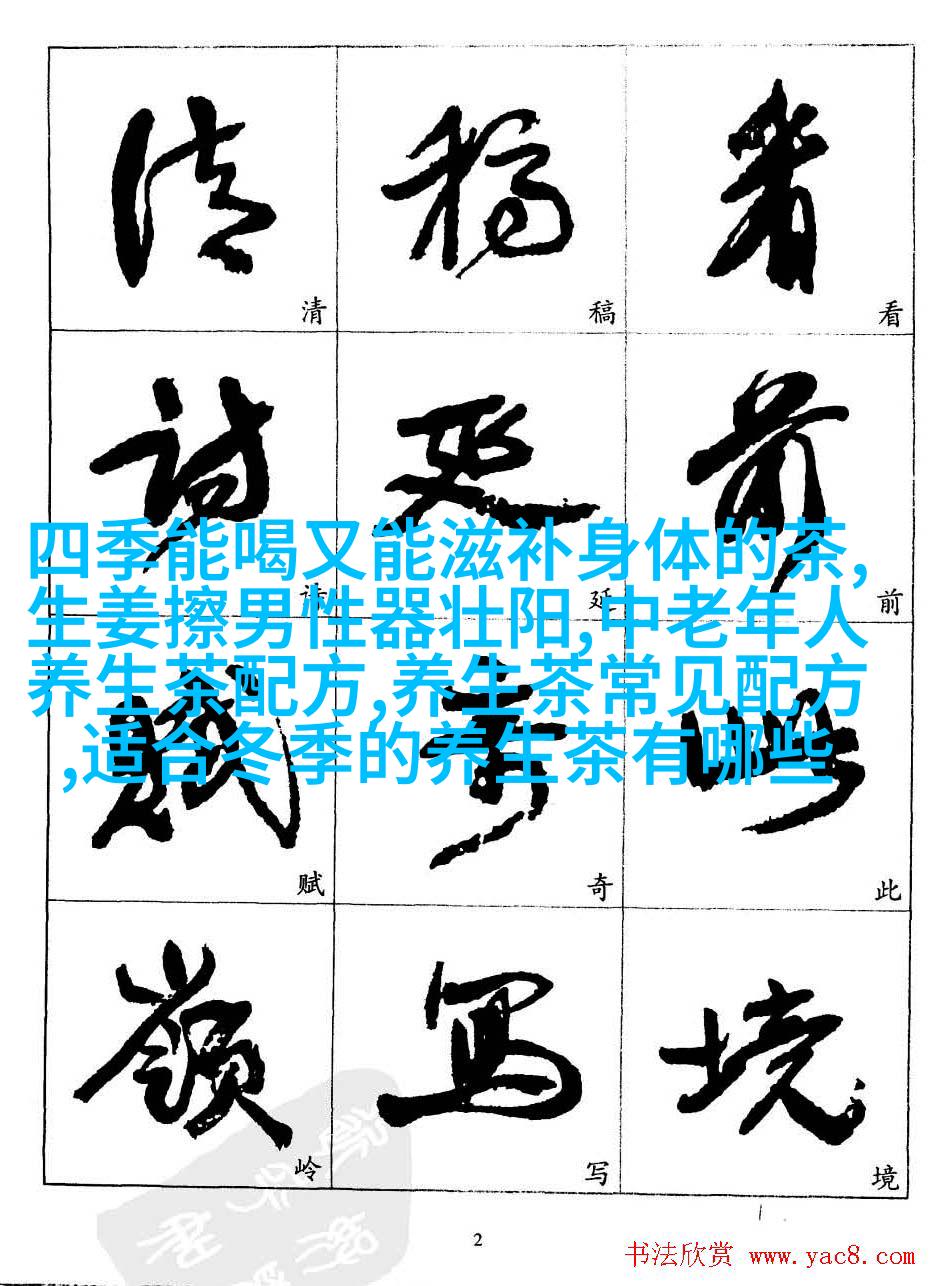 清 稿 看
诗 延 前
四季能喝又能滋补身体的茶,
生姜擦男性器壮阳,中老年人
养生茶配方,养生茶常见配方
,适合冬季的养生茶有哪些
赋 奇 此
岭 写 境
2
书法欣赏 www.yac8.com